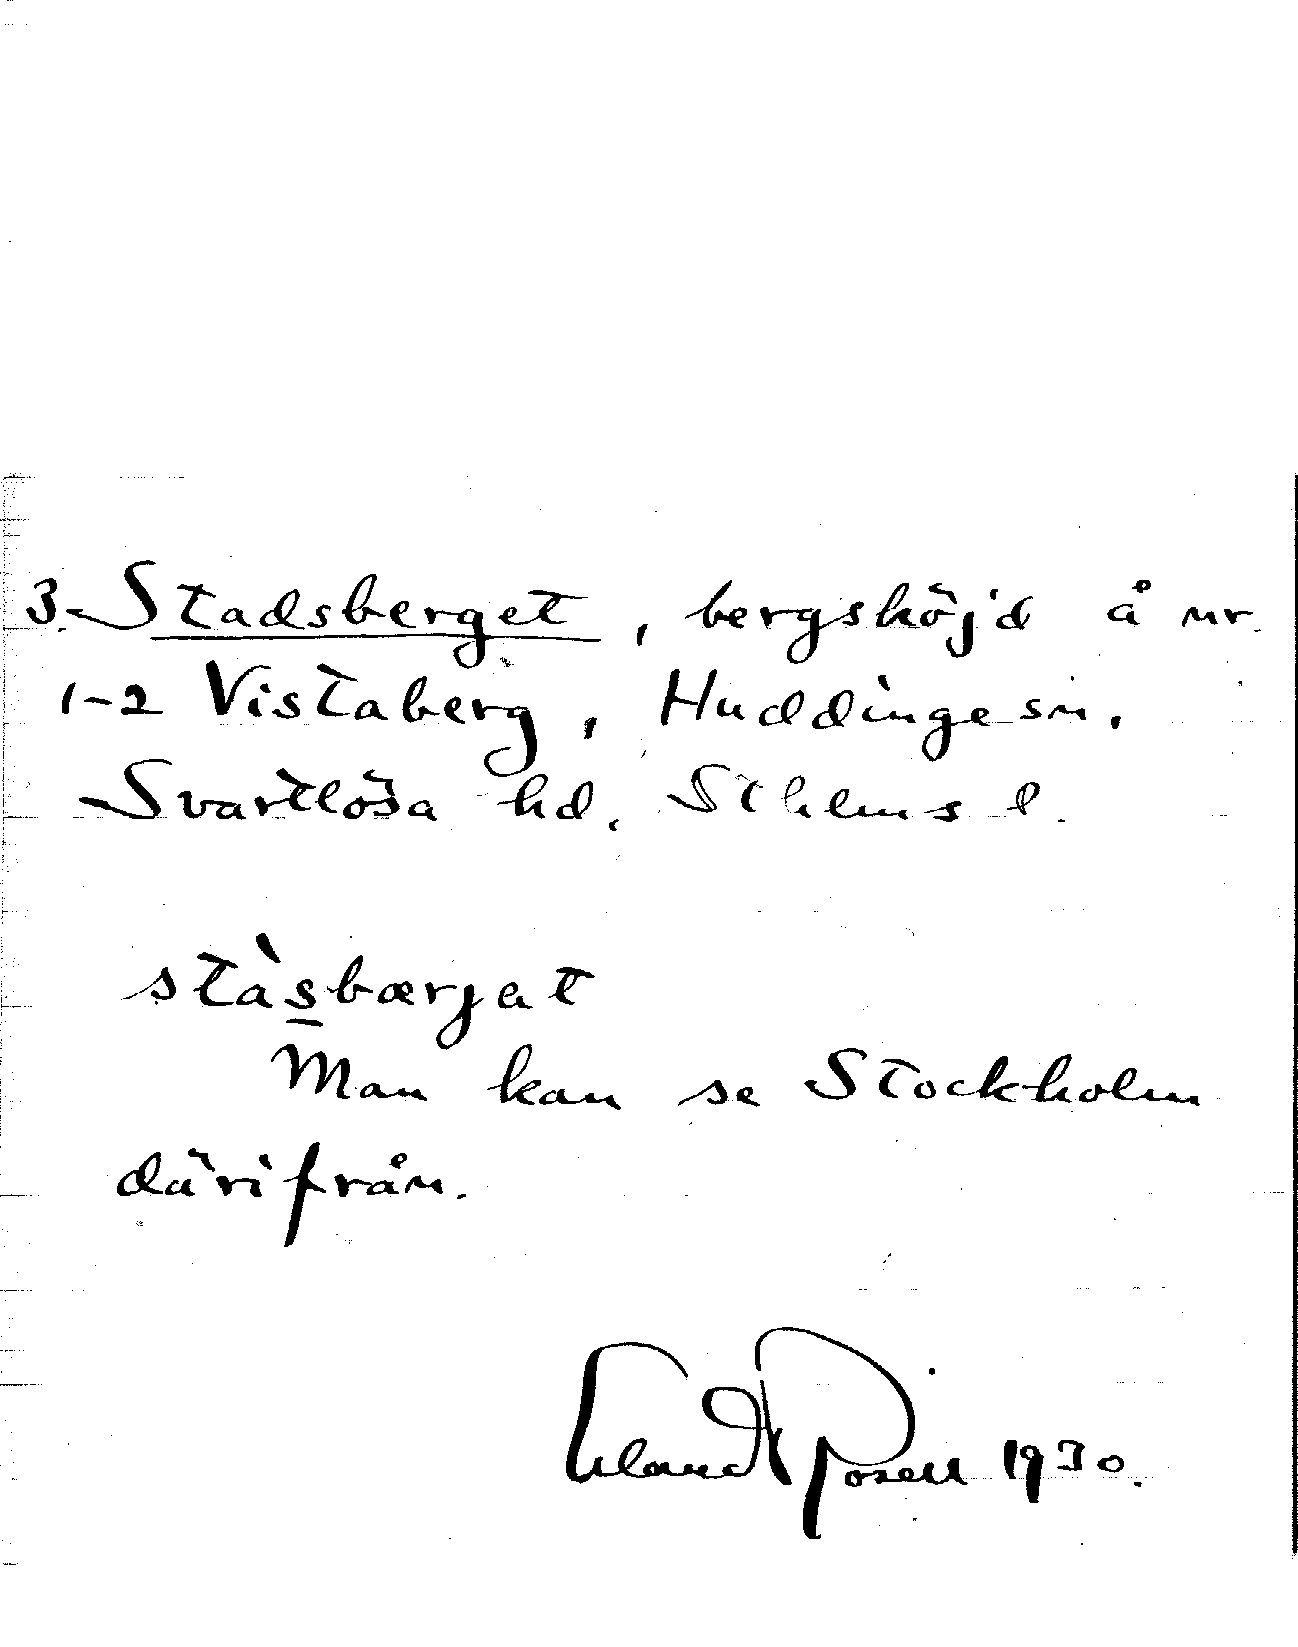 3. Stadsberget, bergshöjd å nr
1-2 Vistaberg, Huddinge sn.
Svartlösa hd. Sthlms l.
stàsbærjat
Man kan se Stockholm
därifrån.
Erland Rosell 1930.